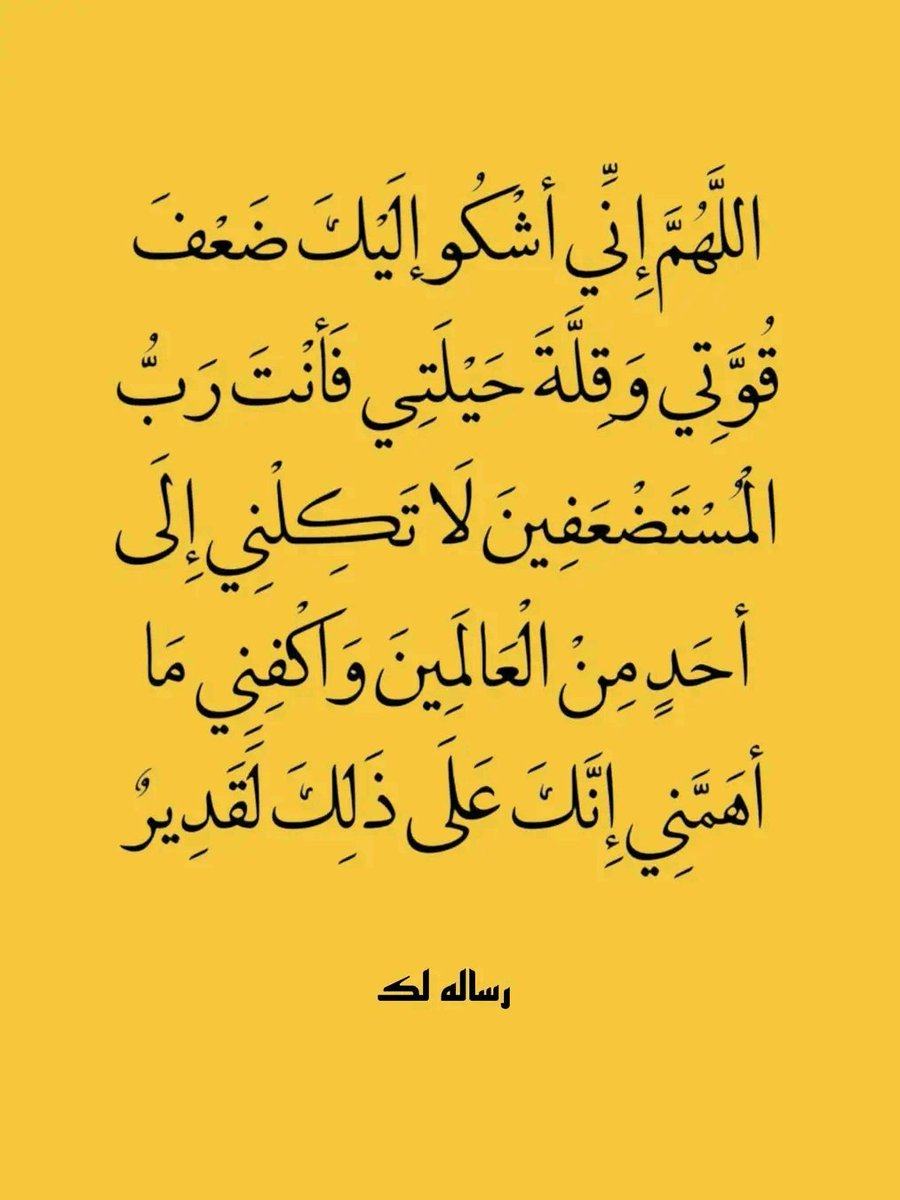 اللَّهُمَّ إِنِّي أشْكُو إلَيْكَ ضَعْفَ
قُوَّتِي وَقِلَّةَ حَيْلَتِي فَأنْتَ رَبُّ
الْمُسْتَضْعَفِينَ لَا تَكِلْنِي إِلَى
أحَدٍ مِنْ الْعَالَمِينَ وَاكْفِنِي مَا
أهَمَّنِي إِنَّكَ عَلَى ذَلِكَ لَقَدِيرٌ
رساله لك